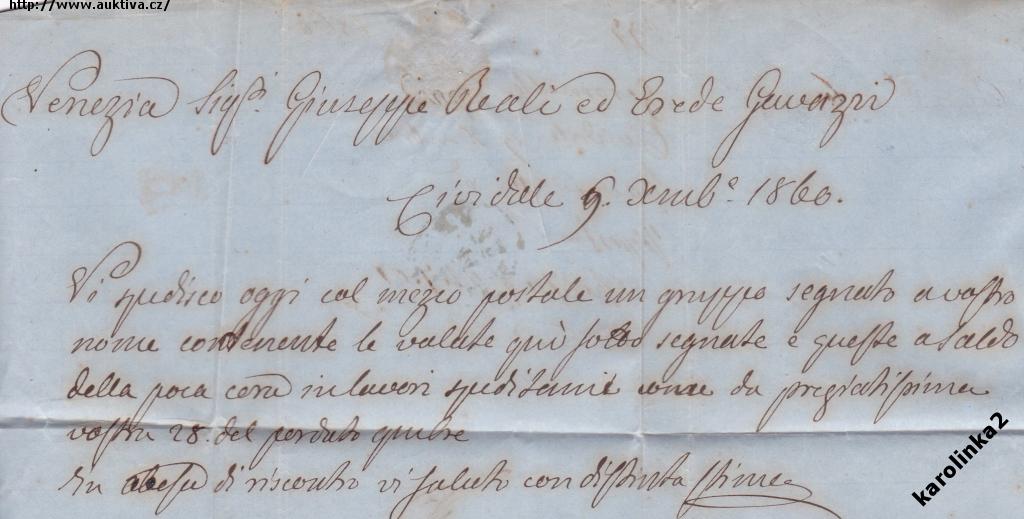 http://www.auktiva.cz/
Venezia Sigri Giuseppe Reali ed Erede Gavazzi
Cividale 9. Xmbe. 1860.
Vi spedisco oggi col mezzo postale un gruppo segnato a vostro
nome contenente le valute quì sotto segnate e queste a saldo
della poca cera in lavori speditami come da pregiatissima
vostra 28. del perduto
In attesa di riscontro vi saluto con distinta stima
karolinka2